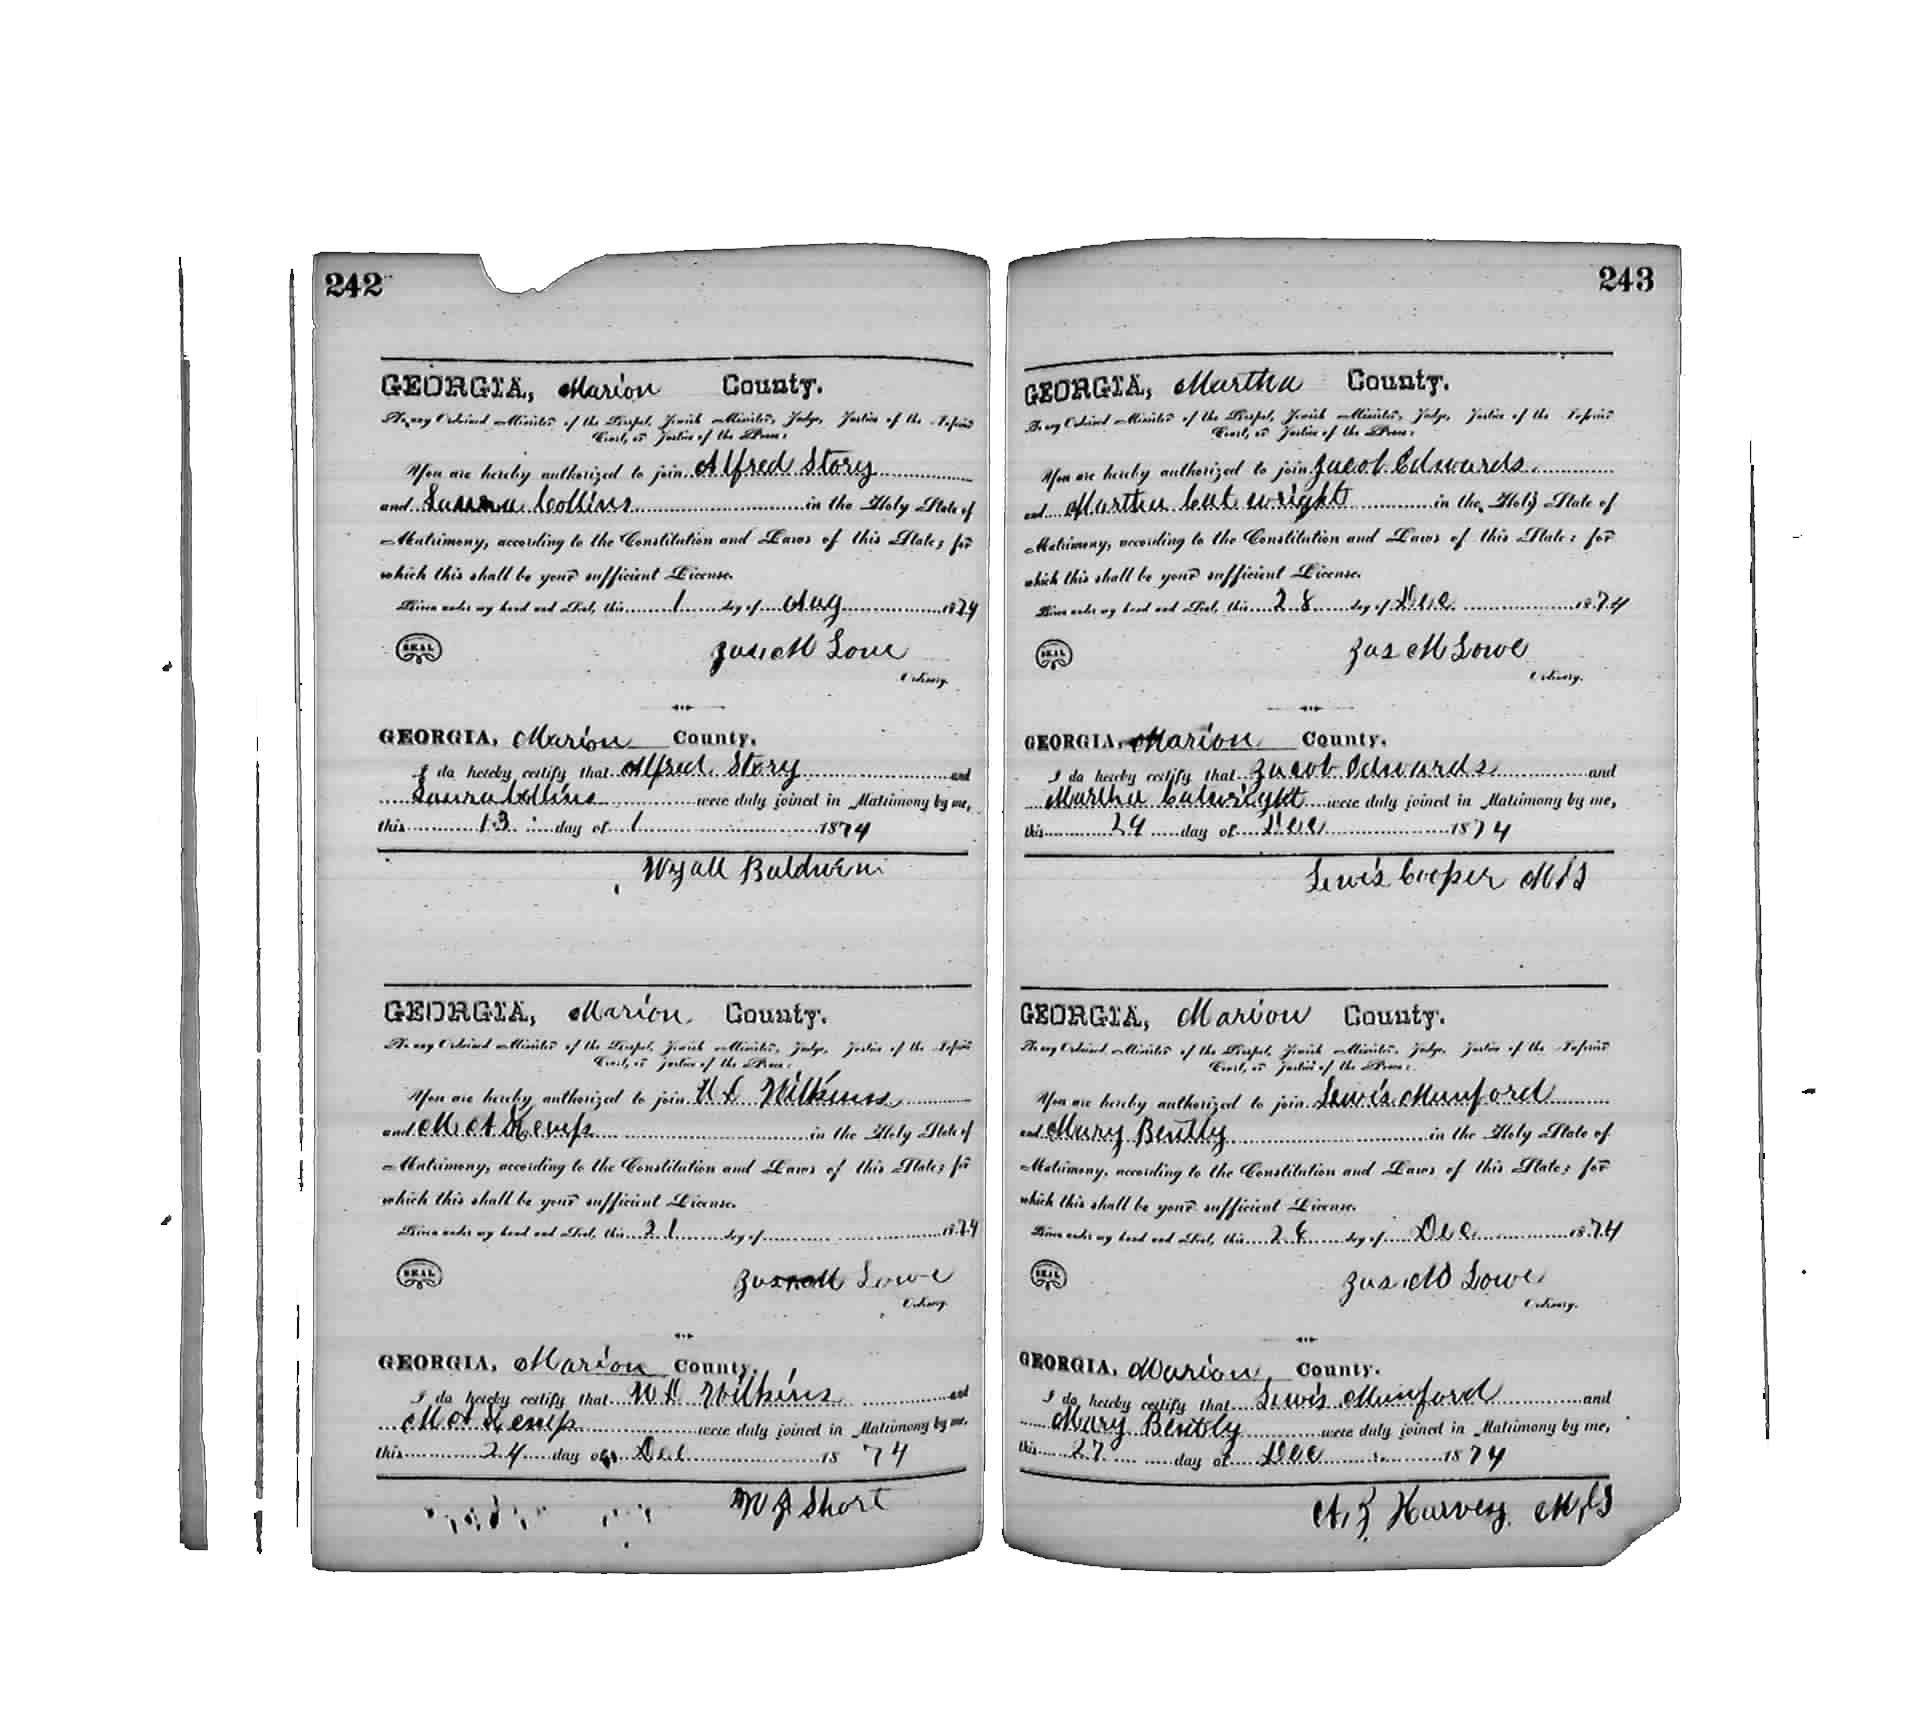 242
GEORGIA, Marion County.
To any Ordained Minister of the Gospel, Jewish Minister, Judge, Justice of the Inferior
Court, or Justice of the Peace:
You are hereby authorized to join Alfred Story
and Laura Collins in the Holy State of
Matrimony, according to the Constitution and Laws of this State; for
which this shall be your sufficient License.
Given under my hand and Seal, this 1 day of Aug 1874
SEAL
Jas M Lowe
Ordinary.
GEORGIA, Marion County.
I do hereby certify that Alfred Story and
Laura Collins were duly joined in Matrimony by me,
this 13 day of 1 1874
Wyatt Baldwin
GEORGIA, Marion County.
To any Ordained Minister of the Gospel, Jewish Minister, Judge, Justice of the Inferior
Court, or Justice of the Peace:
You are hereby authorized to join Wilkins
and M A Kemp in the Holy State of
Matrimony, according to the Constitution and Laws of this State; for
which this shall be your sufficient License.
Given under my hand and Seal, this 21 day of 1874
SEAL
Jas M Lowe
Ordinary.
GEORGIA, Marion County.
I do hereby certify that Wilkins and
M A Kemp were duly joined in Matrimony by me.
this 24 day of Dec 1874
W J Short
243
GEORGIA, Martha County.
To any Ordained Minister of the Gospel, Jewish Minister, Judge, Justice of the Inferior
Court, or Justice of the Peace:
You are hereby authorized to join Jacob Edwards
and Martha Cut wright in the Holy State of
Matrimony, according to the Constitution and Laws of this State; for
which this shall be your sufficient License.
Given under my hand and Seal, this 28 day of Dec 1874
SEAL
Jas M Lowe
Ordinary.
GEORGIA, Marion County.
I do hereby certify that Jacob Edwards and
Martha Cutwright were duly joined in Matrimony by me,
this 29 day of Dec 1874
Lewis Cooper M G
GEORGIA, Marion County.
To any Ordained Minister of the Gospel, Jewish Minister, Judge, Justice of the Inferior
Court, or Justice of the Peace:
You are hereby authorized to join Lewis Munford
and Mary Bently in the Holy State of
Matrimony, according to the Constitution and Laws of this State; for
which this shall be your sufficient License.
Given under my hand and Seal, this 26 day of Dec 1874
SEAL
Jas M Lowe
Ordinary.
GEORGIA, Marion County.
I do hereby certify that Lewis Munford and
Mary Bently were duly joined in Matrimony by me,
this 27 day of Dec 1874
A. Z. Harvey M, G